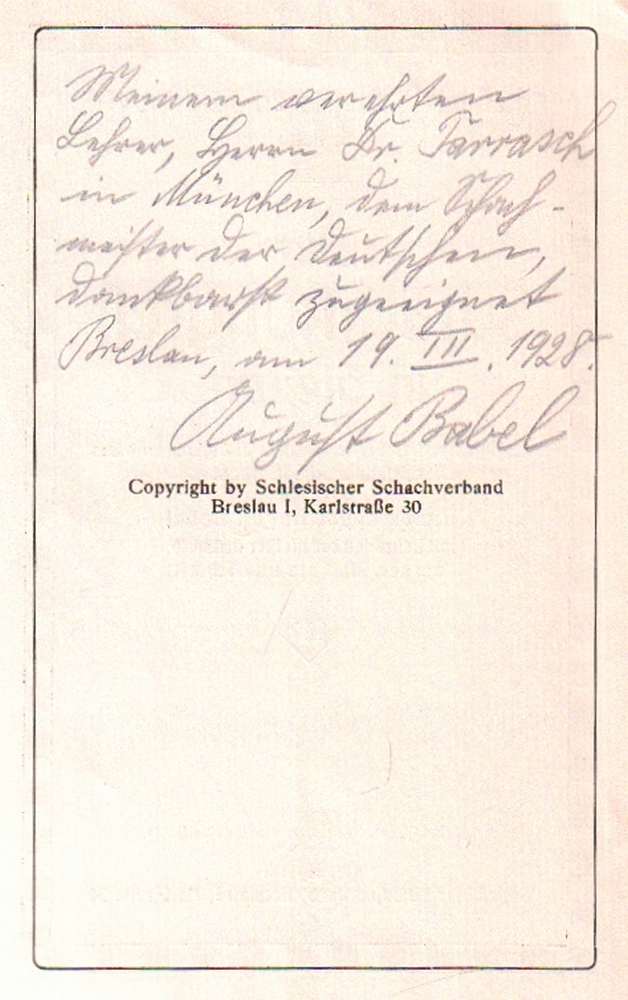 Meinem verehrten
Lehrer, Herrn Dr. Tarrasch
in München, dem Schach-
meister der Deutschen,
dankbarst zugeeignet
Breslau, am 19. III. 1928.
August Babel
Copyright by Schlesischer Schachverband
Breslau I, Karlstraße 30